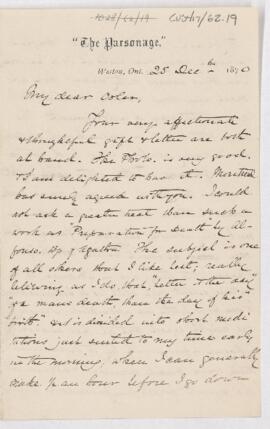 CUSH17/62.19
"The Parsonage."
Weston, Ont. 25 Dec. 1890
My dear Osler,
Your very affectionate
& thoughtful gift & letter are both
at hand. The Photo. is very good.
& I am delighted to have it. Montreal
has surely agreed with you. I could
not ask a greater treat than such a
work as Preparation for Death by Al-
fonso. Bp of Agatha. The subject is one
of all others that I like best, really
believing as I do that, better is the "day
of a mans death, than the day of his
birth". It is divided into short medi
tations just suited to my time early
in the morning, when I can generally
make up an hour before I go down